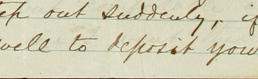 ep out suddenly, if
well to deposit you